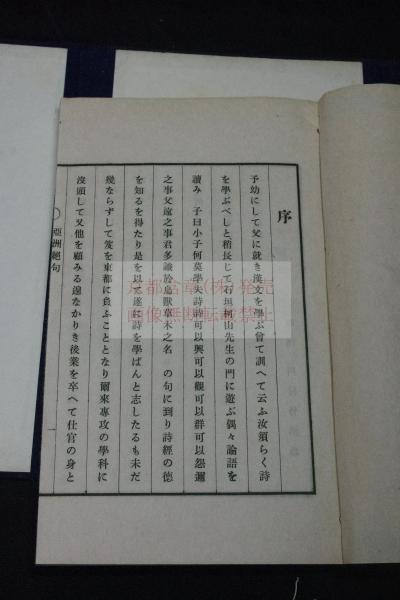 序
予幼にして父に就き漢文を學ぶ曾て訓へて云ふ汝須らく詩
を學ぶべしと稍長じて石垣柯山先生の門に遊ぶ偶々論語を
讀み 子曰小子何莫學夫詩詩可以興可以觀可以群可以怨邇
之事父遠之事君多識於鳥獸草木之名 の句に到り詩經の德
を知るを得たり是を以て遂に詩を學ばんと志したるも未だ
幾ならずして笈を東都に負ふこととなり爾來專攻の學科に
沒頭して又他を顧みる遑なかりき後業を卒へて仕官の身と
亞洲絕句
一
大都会堂(株)発売
画像無断転載禁止